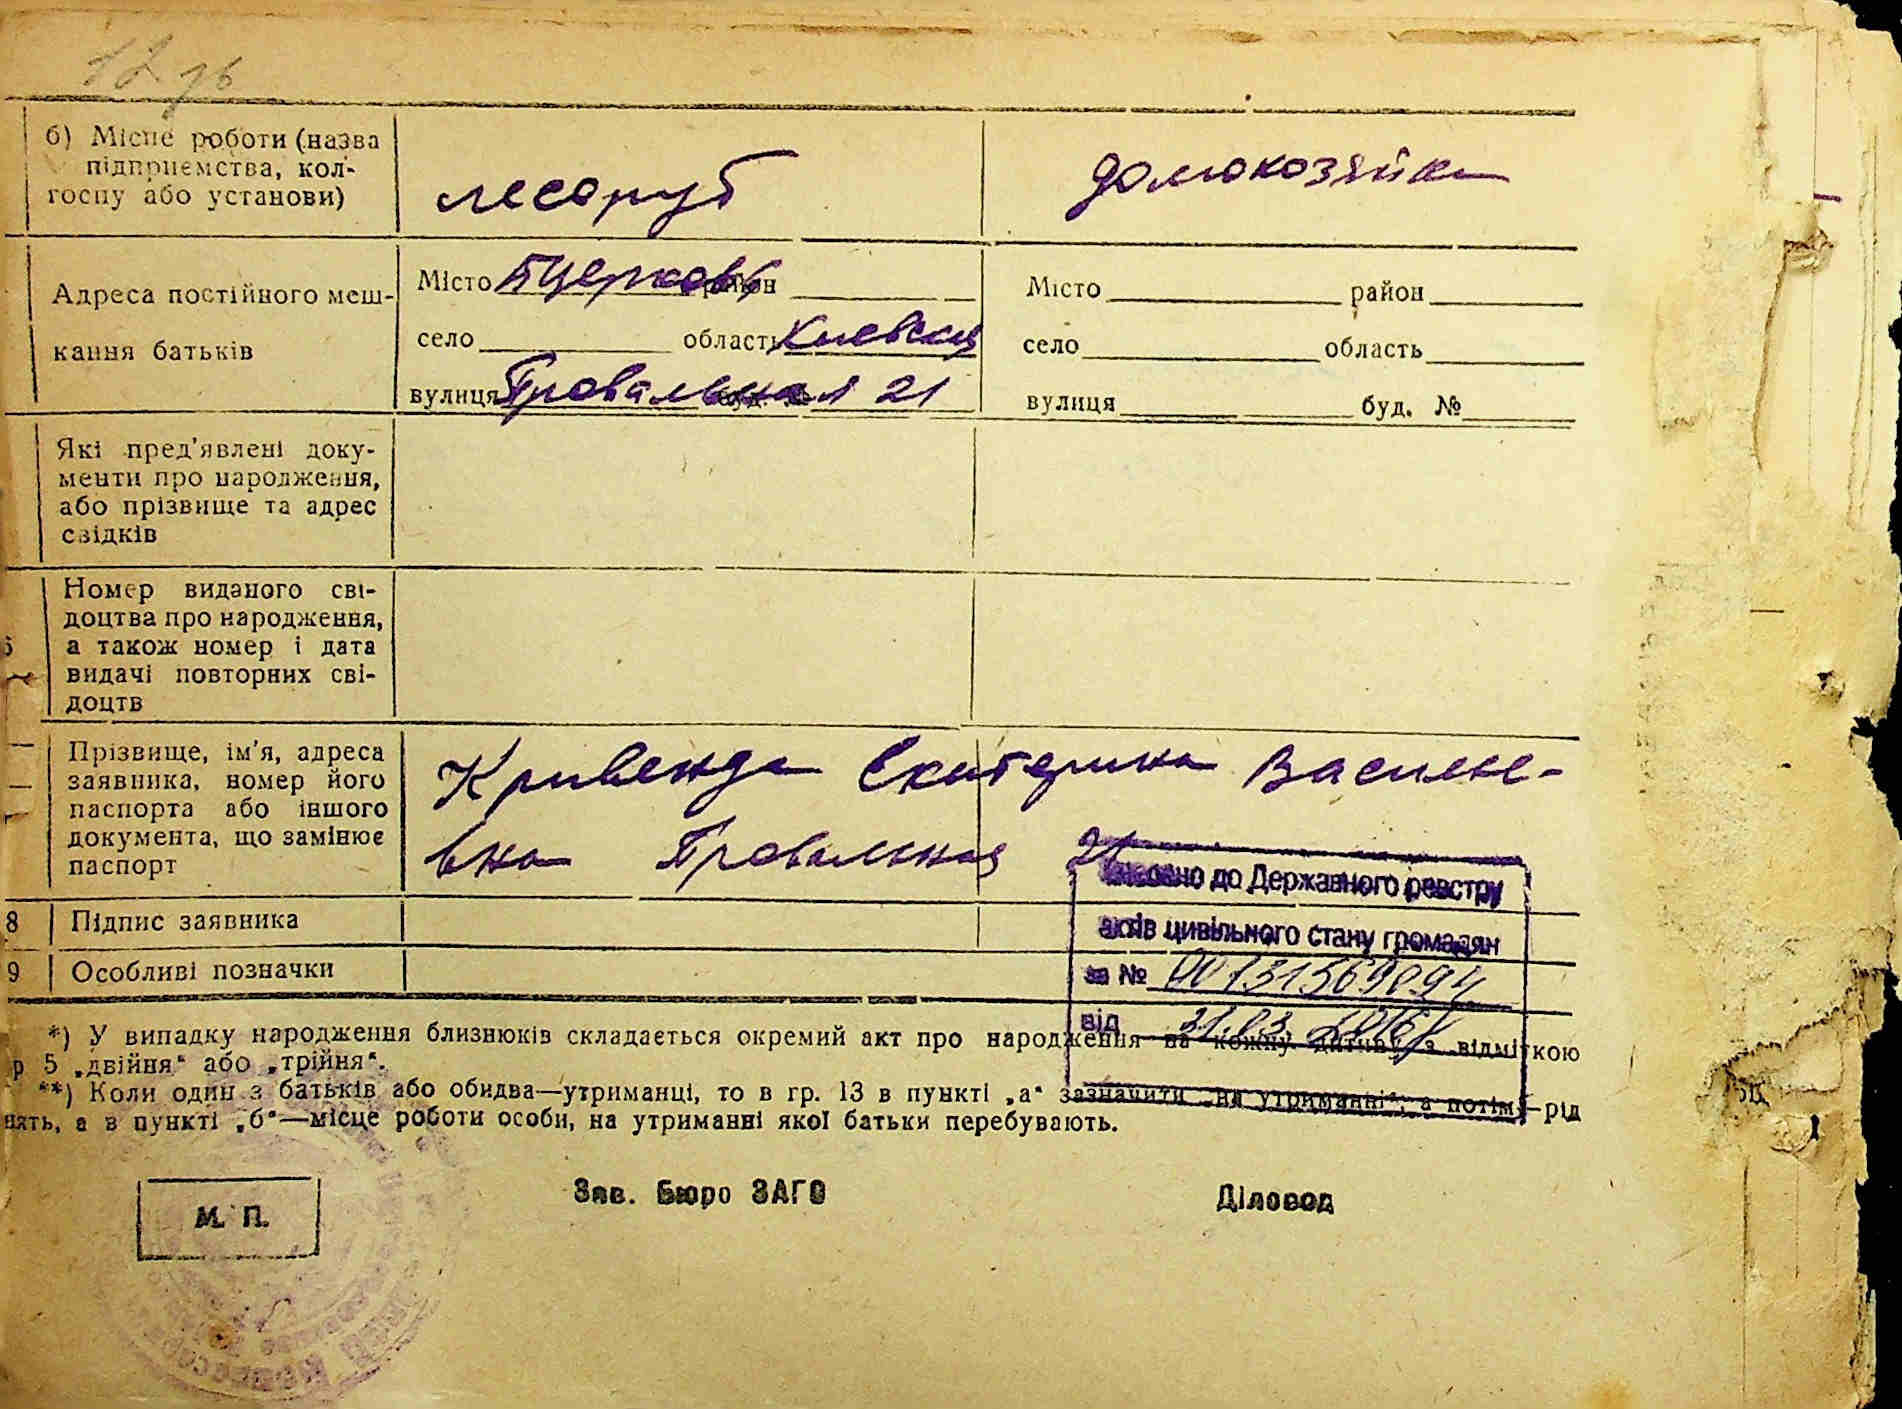 12 зв
б) Місце роботи (назва
підприємства, кол-
госпу або установи)
лесоруб
домохозяйка
Адреса постійного меш-
кання батьків
Місто Бцерковь район
село область Киевская
вулиця Провальная буд. № 21
Місто район
село область
вулиця буд. №
Які пред'явлені доку-
менти про народження,
або прізвище та адрес
свідків
Номер виданого сві-
доцтва про народження,
а також номер і дата
видачі повторних сві-
доцтв
Прізвище, ім'я, адреса
заявника, номер його
паспорта або іншого
документа, що замінює
паспорт
Кривенда Екатерина Василье-
вна Провальная 21
8 Підпис заявника
9 Особливі позначки
Внесено до Державного реєстру
актів цивільного стану громадян
за № 00131569894
від 31.03.2016
*) У випадку народження близнюків складається окремий акт про народження на кожну дитину з відміткою
р 5 „двійня“ або „трійня“.
**) Коли один з батьків або обидва—утриманці, то в гр. 13 в пункті „а“ зазначити „на утриманні“, а потім рід
нять, а в пункті „б“—місце роботи особи, на утриманні якої батьки перебувають.
М. П.
Зав. Бюро ЗАГС
Діловод